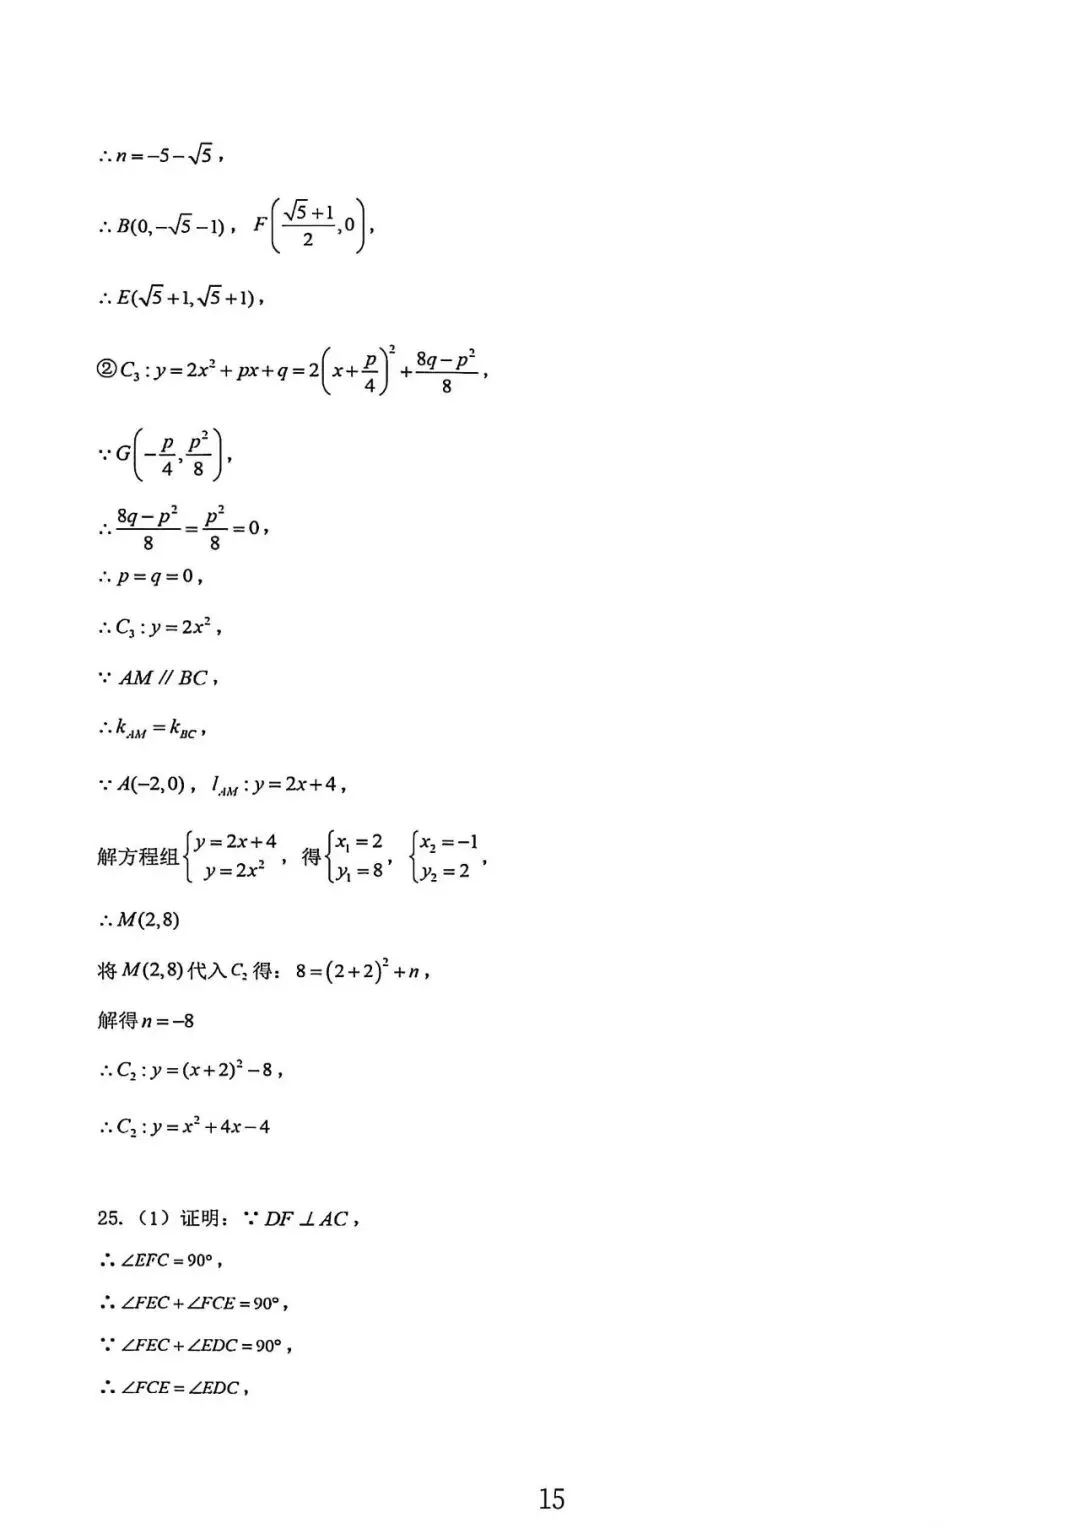 ∴n=-5-√5，
∴B(0,-√5-1)，F((√5+1)/2,0)，
∴E(√5+1,√5+1)，
②C₃:y=2x²+px+q=2(x+p/4)²+(8q-p²)/8，
∵G(-p/4,p²/8)，
∴(8q-p²)/8=p²/8=0，
∴p=q=0，
∴C₃:y=2x²，
∵AM∥BC，
∴k_AM=k_BC，
∵A(-2,0)，l_AM:y=2x+4，
解方程组{y=2x+4 y=2x²，得{x₁=2 y₁=8，{x₂=-1 y₂=2，
∴M(2,8)
将M(2,8)代入C₂得：8=(2+2)²+n，
解得n=-8
∴C₂:y=(x+2)²-8，
∴C₂:y=x²+4x-4
25.（1）证明：∵DF⊥AC，
∴∠EFC=90°，
∴∠FEC+∠FCE=90°，
∵∠FEC+∠EDC=90°，
∴∠FCE=∠EDC，
15